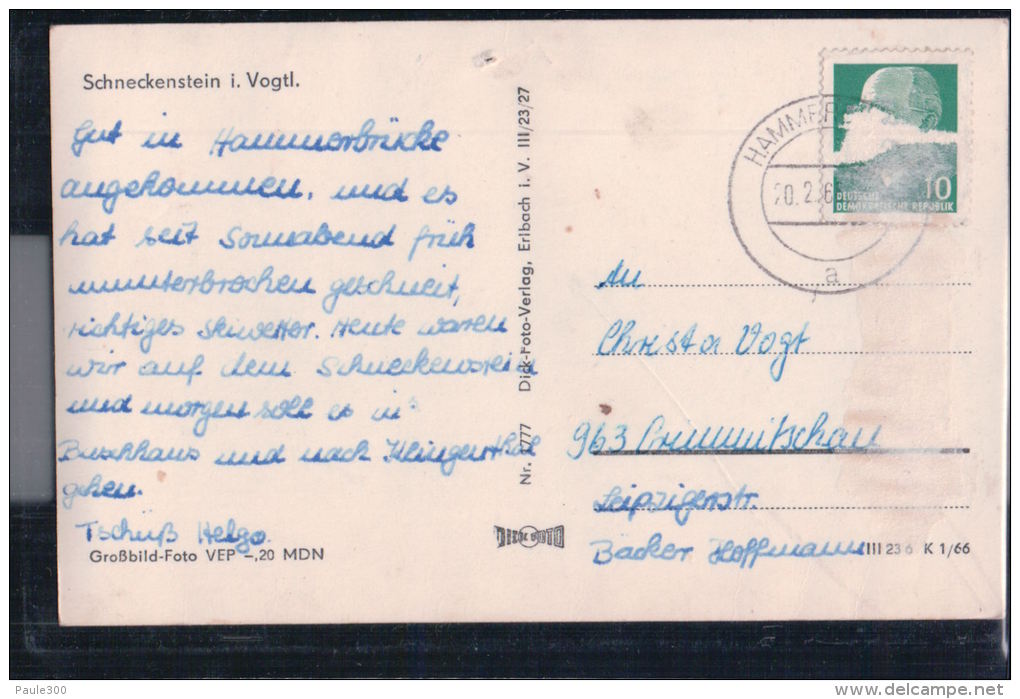 Schneckenstein i. Vogtl.
Gut in Hammerbrücke
angekommen, und es
hat seit Sonnabend früh
ununterbrochen geschneit,
richtiges Skiwetter. Heute waren
wir auf dem Schneckenstein
und morgen soll es in's
Buschhaus und nach Klingenthal
gehen.
Tschüß Helga.
Großbild-Foto VEP -,20 MDN
Dick-Foto-Verlag, Erlbach i. V. III/23/27
DICK FOTO
DEUTSCHE
DEMOKRATISCHE REPUBLIK
10
20.2.6
a
An
Christa Vogt
963 Crimmitschau
Leipzigerstr.
Bäcker Hoffmann
III 23 6 K 1/66
Paule300
© delcampe.net